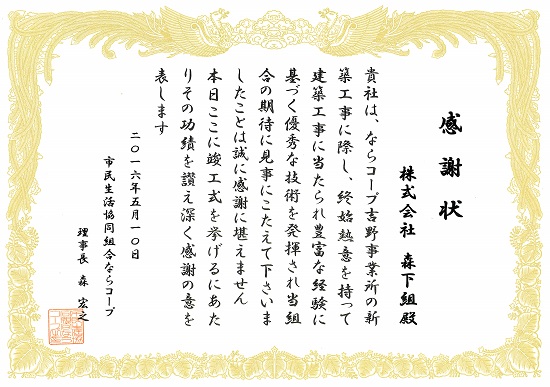 感謝状
株式会社 森下組殿
貴社は、ならコープ吉野事業所の新
築工事に際し、終始熱意を持って
建築工事に当たられ豊富な経験に
基づく優秀な技術を発揮され当組
合の期待に見事にこたえて下さいま
したことは誠に感謝に堪えません
本日ここに竣工式を挙げるにあた
りその功績を讃え深く感謝の意を
表します
二〇一六年五月一〇日
市民生活協同組合ならコープ
理事長 森 宏之